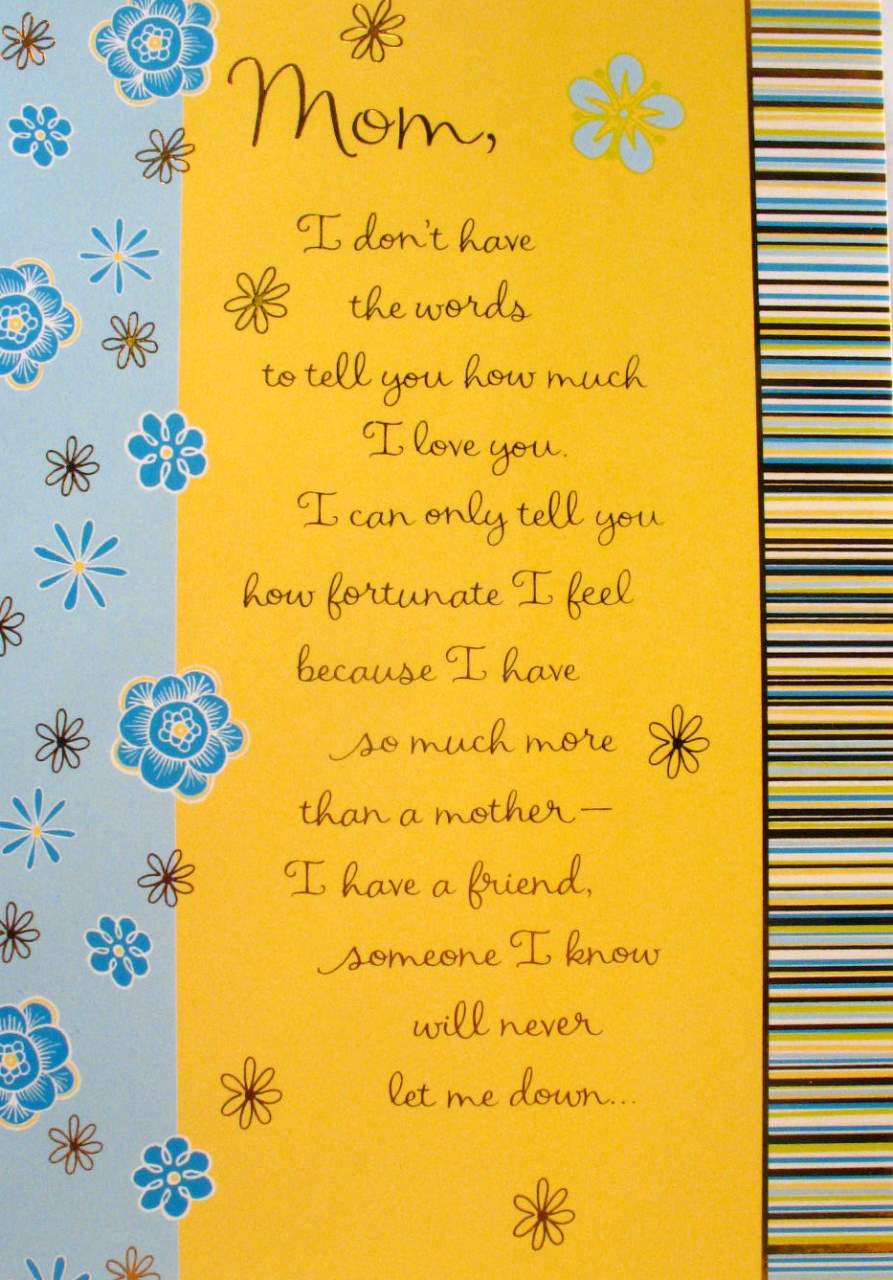 Mom,
I don't have
the words
to tell you how much
I love you.
I can only tell you
how fortunate I feel
because I have
so much more
than a mother—
I have a friend,
someone I know
will never
let me down...